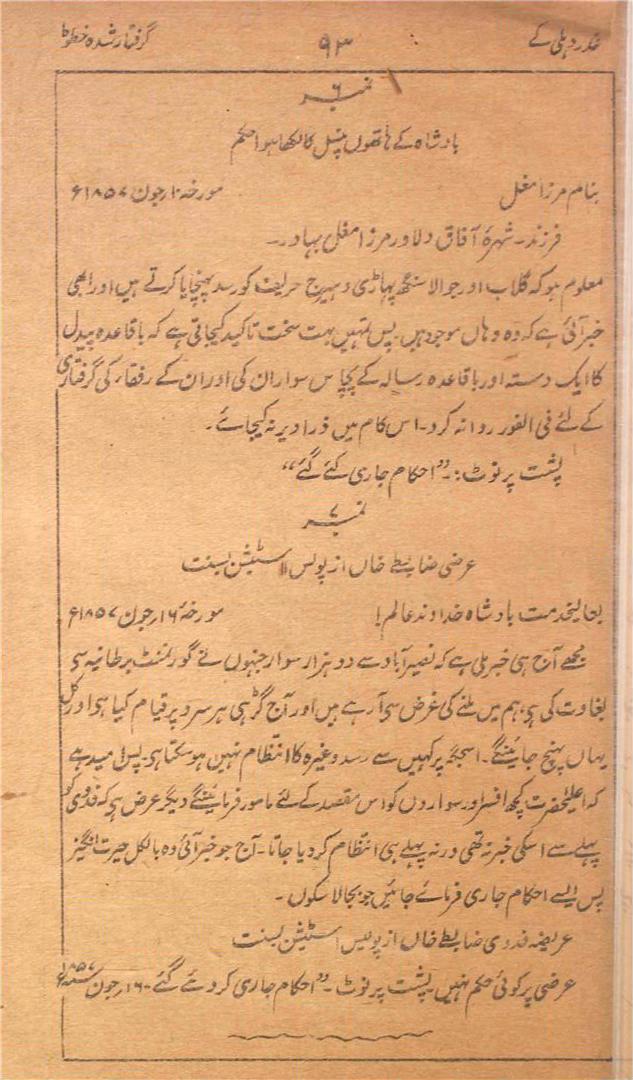 غدر دہلی کے ۹۳ گرفتار شدہ خطوط
نمبر ۶
بادشاہ کے ہاتھوں پنسل کا لکھا ہوا حکم
بنام مرزا مغل مورخہ ۱۰ رجون ۱۸۵۷ء
فرزند۔ شہرۂ آفاق دلاور مرزا مغل بہادر۔
معلوم ہو کہ گلاب اور جوالا سنگھ پہاڑی دہیرج حریف کو رسد پہنچایا کرتے ہیں اور ابھی
خبر آئی ہے کہ وہ وہاں موجود ہیں۔ پس تمہیں بہت سخت تاکید کیجاتی ہے کہ باقاعدہ پیدل
کا ایک دستہ اور باقاعدہ رسالہ کے پچاس سوار ان کی اور ان کے رفقاء کی گرفتاری
کے لئے فی الفور روانہ کرد۔ اس کام میں ذرا دیر نہ کیجائے۔
پشت پر نوٹ:۔ "احکام جاری کئے گئے"
نمبر ۷
عرضی ضابطے خاں از پولس اسٹیشن بسنت
بعالیخدمت بادشاہ خداوند عالم! مورخہ ۱۶ رجون ۱۸۵۷ء
مجھے آج ہی خبر ملی ہے کہ نصیر آباد سے دو ہزار سوار جنہوں نے گورنمنٹ برطانیہ سی
بغاوت کی ہی، ہم میں ملنے کی غرض سی آرہے ہیں اور آج گڑہی ہر سرو پر قیام کیا ہی اور کل
یہاں پہنچ جائینگے۔ اسجگہ پر کہیں سے رسد وغیرہ کا انتظام نہیں ہو سکتا ہی۔ پس امید ہے
کہ اعلیٰحضرت کچھ افسر اور سواروں کو اس مقصد کے لئے مامور فرمائینگے دیگر عرض ہی کہ فدوی کو
پہلے سے اسکی خبر نہ تھی ورنہ پہلے ہی انتظام کردیا جاتا۔ آج جو خبر آئی وہ بالکل حیرت انگیز
پس ایسے احکام جاری فرمائے جائیں جو بجالا سکوں۔
عریضہ فدوی ضابطے خاں از پولیس اسٹیشن بسنت
عرضی پر کوئی حکم نہیں۔ پشت پر نوٹ۔ "احکام جاری کردئے گئے۔ ۱۶ رجون ۱۸۵۷ء